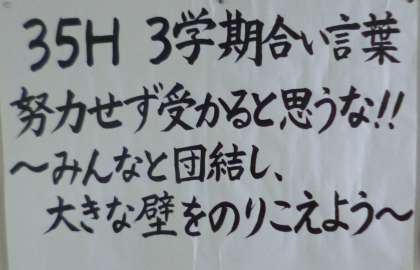 35H 3学期合い言葉
努力せず受かると思うな!!
〜みんなと団結し、
大きな壁をのりこえよう〜